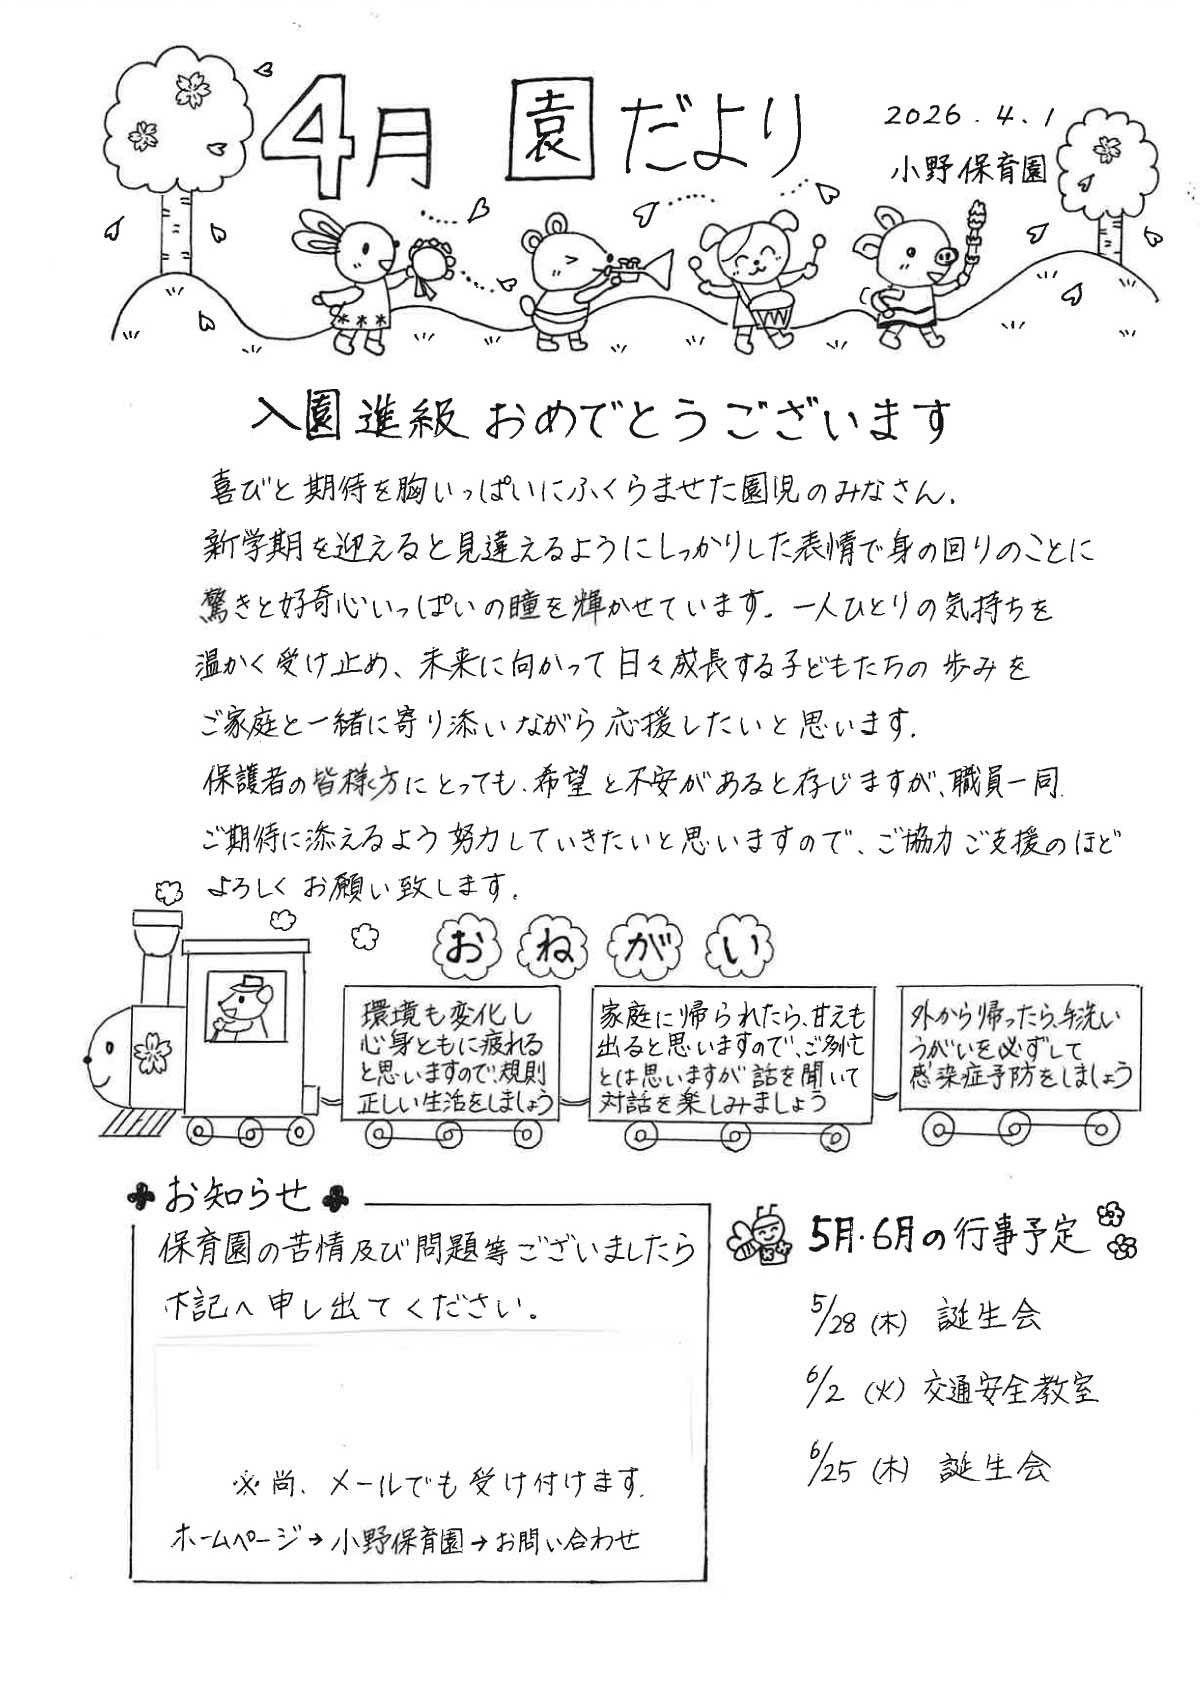 4月 園だより
2026.4.1
小野保育園
入園進級おめでとうございます
喜びと期待を胸いっぱいにふくらませた園児のみなさん。
新学期を迎えると見違えるようにしっかりした表情で身の回りのことに
驚きと好奇心いっぱいの瞳を輝かせています。一人ひとりの気持ちを
温かく受け止め、未来に向かって日々成長する子どもたちの歩みを
ご家庭と一緒に寄り添いながら応援したいと思います。
保護者の皆様方にとっても、希望と不安があると存じますが、職員一同
ご期待に添えるよう努力していきたいと思いますので、ご協力ご支援のほど
よろしくお願い致します。
おねがい
環境も変化し
心身ともに疲れる
と思いますので、規則
正しい生活をしましょう
家庭に帰られたら、甘えも
出ると思いますので、ご多忙
とは思いますが話を聞いて
対話を楽しみましょう
外から帰ったら、手洗い
うがいを必ずして
感染症予防をしましょう
お知らせ
保育園の苦情及び問題等ございましたら
下記へ申し出てください。
※尚、メールでも受け付けます。
ホームページ→小野保育園→お問い合わせ
5月・6月の行事予定
5/28(木) 誕生会
6/2(火) 交通安全教室
6/25(木) 誕生会